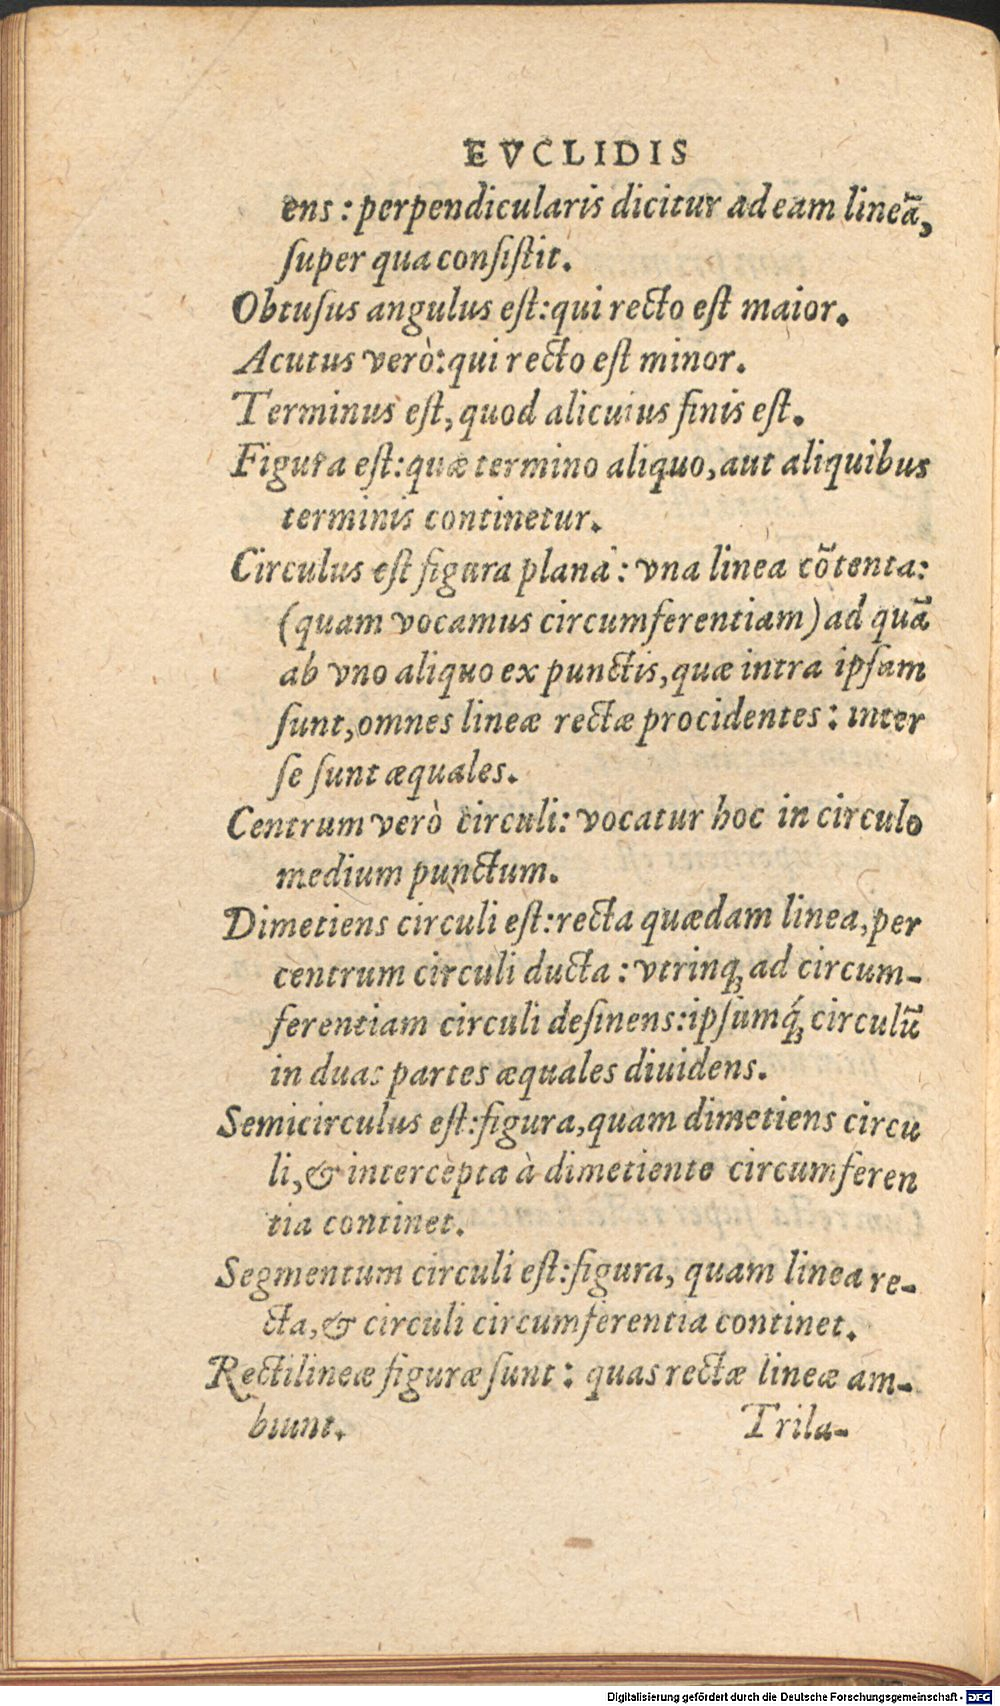 EVCLIDIS
ens : perpendicularis dicitur ad eam lineã,
ſuper qua conſiſtit.
Obtuſus angulus eſt: qui recto eſt maior.
Acutus verò: qui recto eſt minor.
Terminus eſt, quod alicuius finis eſt.
Figura eſt: quæ termino aliquo, aut aliquibus
terminis continetur.
Circulus eſt figura plana : vna linea cõtenta:
(quam vocamus circumferentiam) ad quã
ab vno aliquo ex punctis, quæ intra ipſam
ſunt, omnes lineæ rectæ procidentes : inter
ſe ſunt æquales.
Centrum verò circuli: vocatur hoc in circulo
medium punctum.
Dimetiens circuli eſt: recta quædam linea, per
centrum circuli ducta : vtrinq; ad circum-
ferentiam circuli deſinens: ipſumq́; circulũ
in duas partes æquales diuidens.
Semicirculus eſt: figura, quam dimetiens circu
li, & intercepta à dimetiente circumferen
tia continet.
Segmentum circuli eſt: figura, quam linea re-
cta, & circuli circumferentia continet.
Rectilineæ figuræ ſunt : quas rectæ lineæ am-
biunt. Trila-
Digitalisierung gefördert durch die Deutsche Forschungsgemeinschaft - DFG